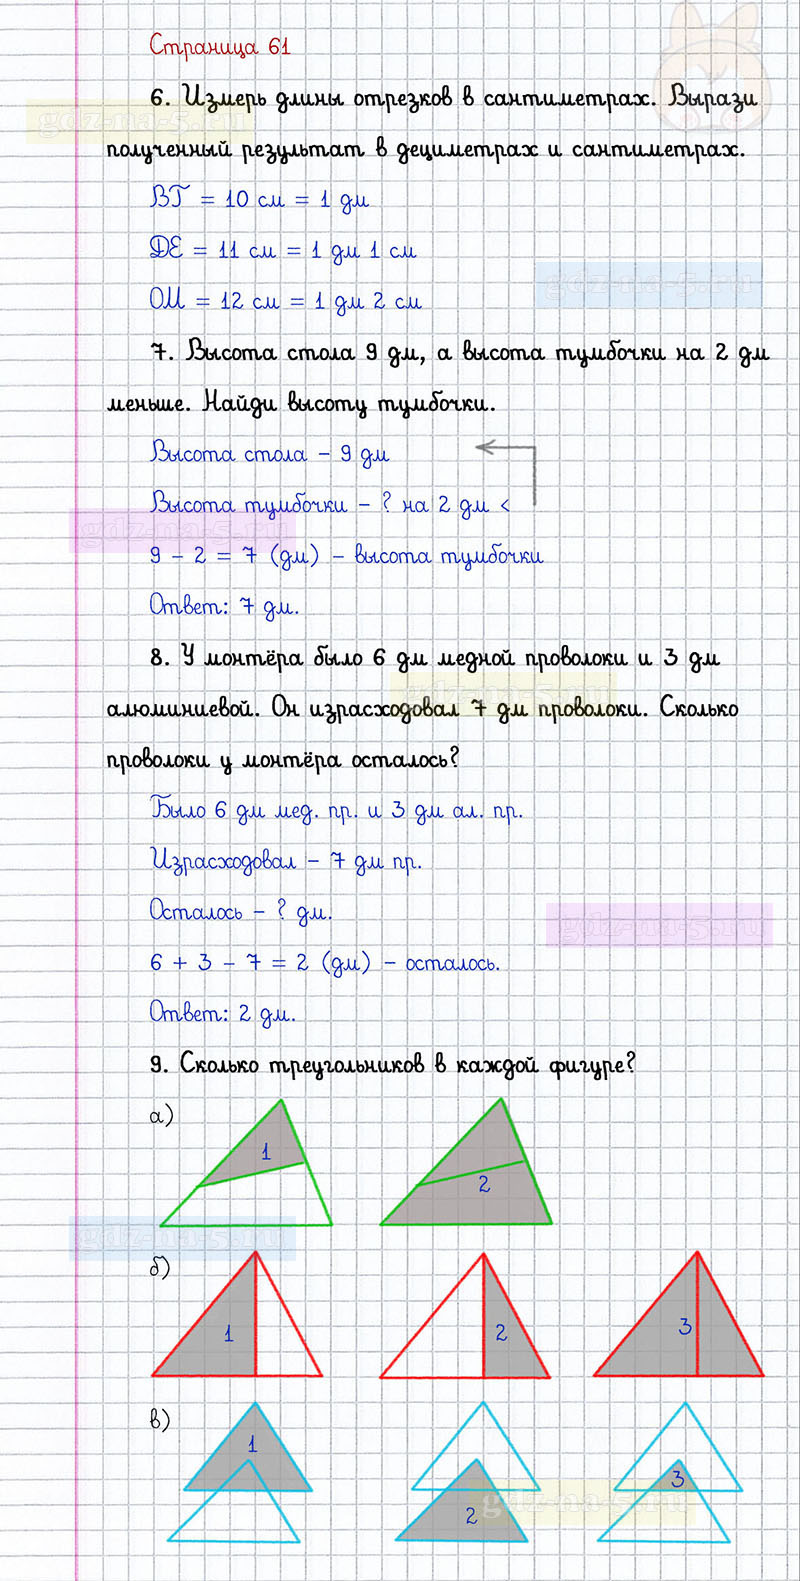 Страница 61
6. Измерь длины отрезков в сантиметрах. Вырази
полученный результат в дециметрах и сантиметрах.
ВТ = 10 см = 1 дм
ДЕ = 11 см = 1 дм 1 см
ОМ = 12 см = 1 дм 2 см
7. Высота стола 9 дм, а высота тумбочки на 2 дм
меньше. Найди высоту тумбочки.
Высота стола – 9 дм
Высота тумбочки – ? на 2 дм <
9 – 2 = 7 (дм) – высота тумбочки
Ответ: 7 дм.
8. У монтёра было 6 дм медной проволоки и 3 дм
алюминиевой. Он израсходовал 7 дм проволоки. Сколько
проволоки у монтёра осталось?
Было 6 дм мед. пр. и 3 дм ал. пр.
Израсходовал – 7 дм пр.
Осталось – ? дм.
6 + 3 – 7 = 2 (дм) – осталось.
Ответ: 2 дм.
9. Сколько треугольников в каждой фигуре?
а)
1
2
б)
1
2
3
в)
1
2
3
gdz-na-5.ru
gdz-na-5.ru
gdz-na-5.ru
gdz-na-5.ru
gdz-na-5.ru
gdz-na-5.ru
gdz-na-5.ru